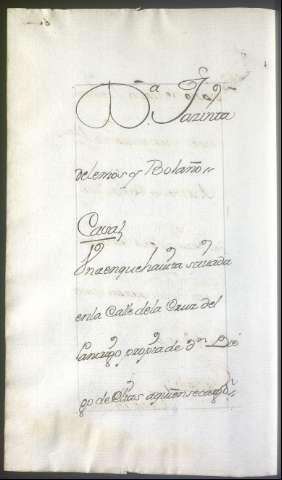 D.ª Jazinta
de Lemos y Bolaño
Casas
Una en que havita situada
en la Calle de la Cruz del
Cantargo propria de Dn Die
go de Oxas a quien se cargo